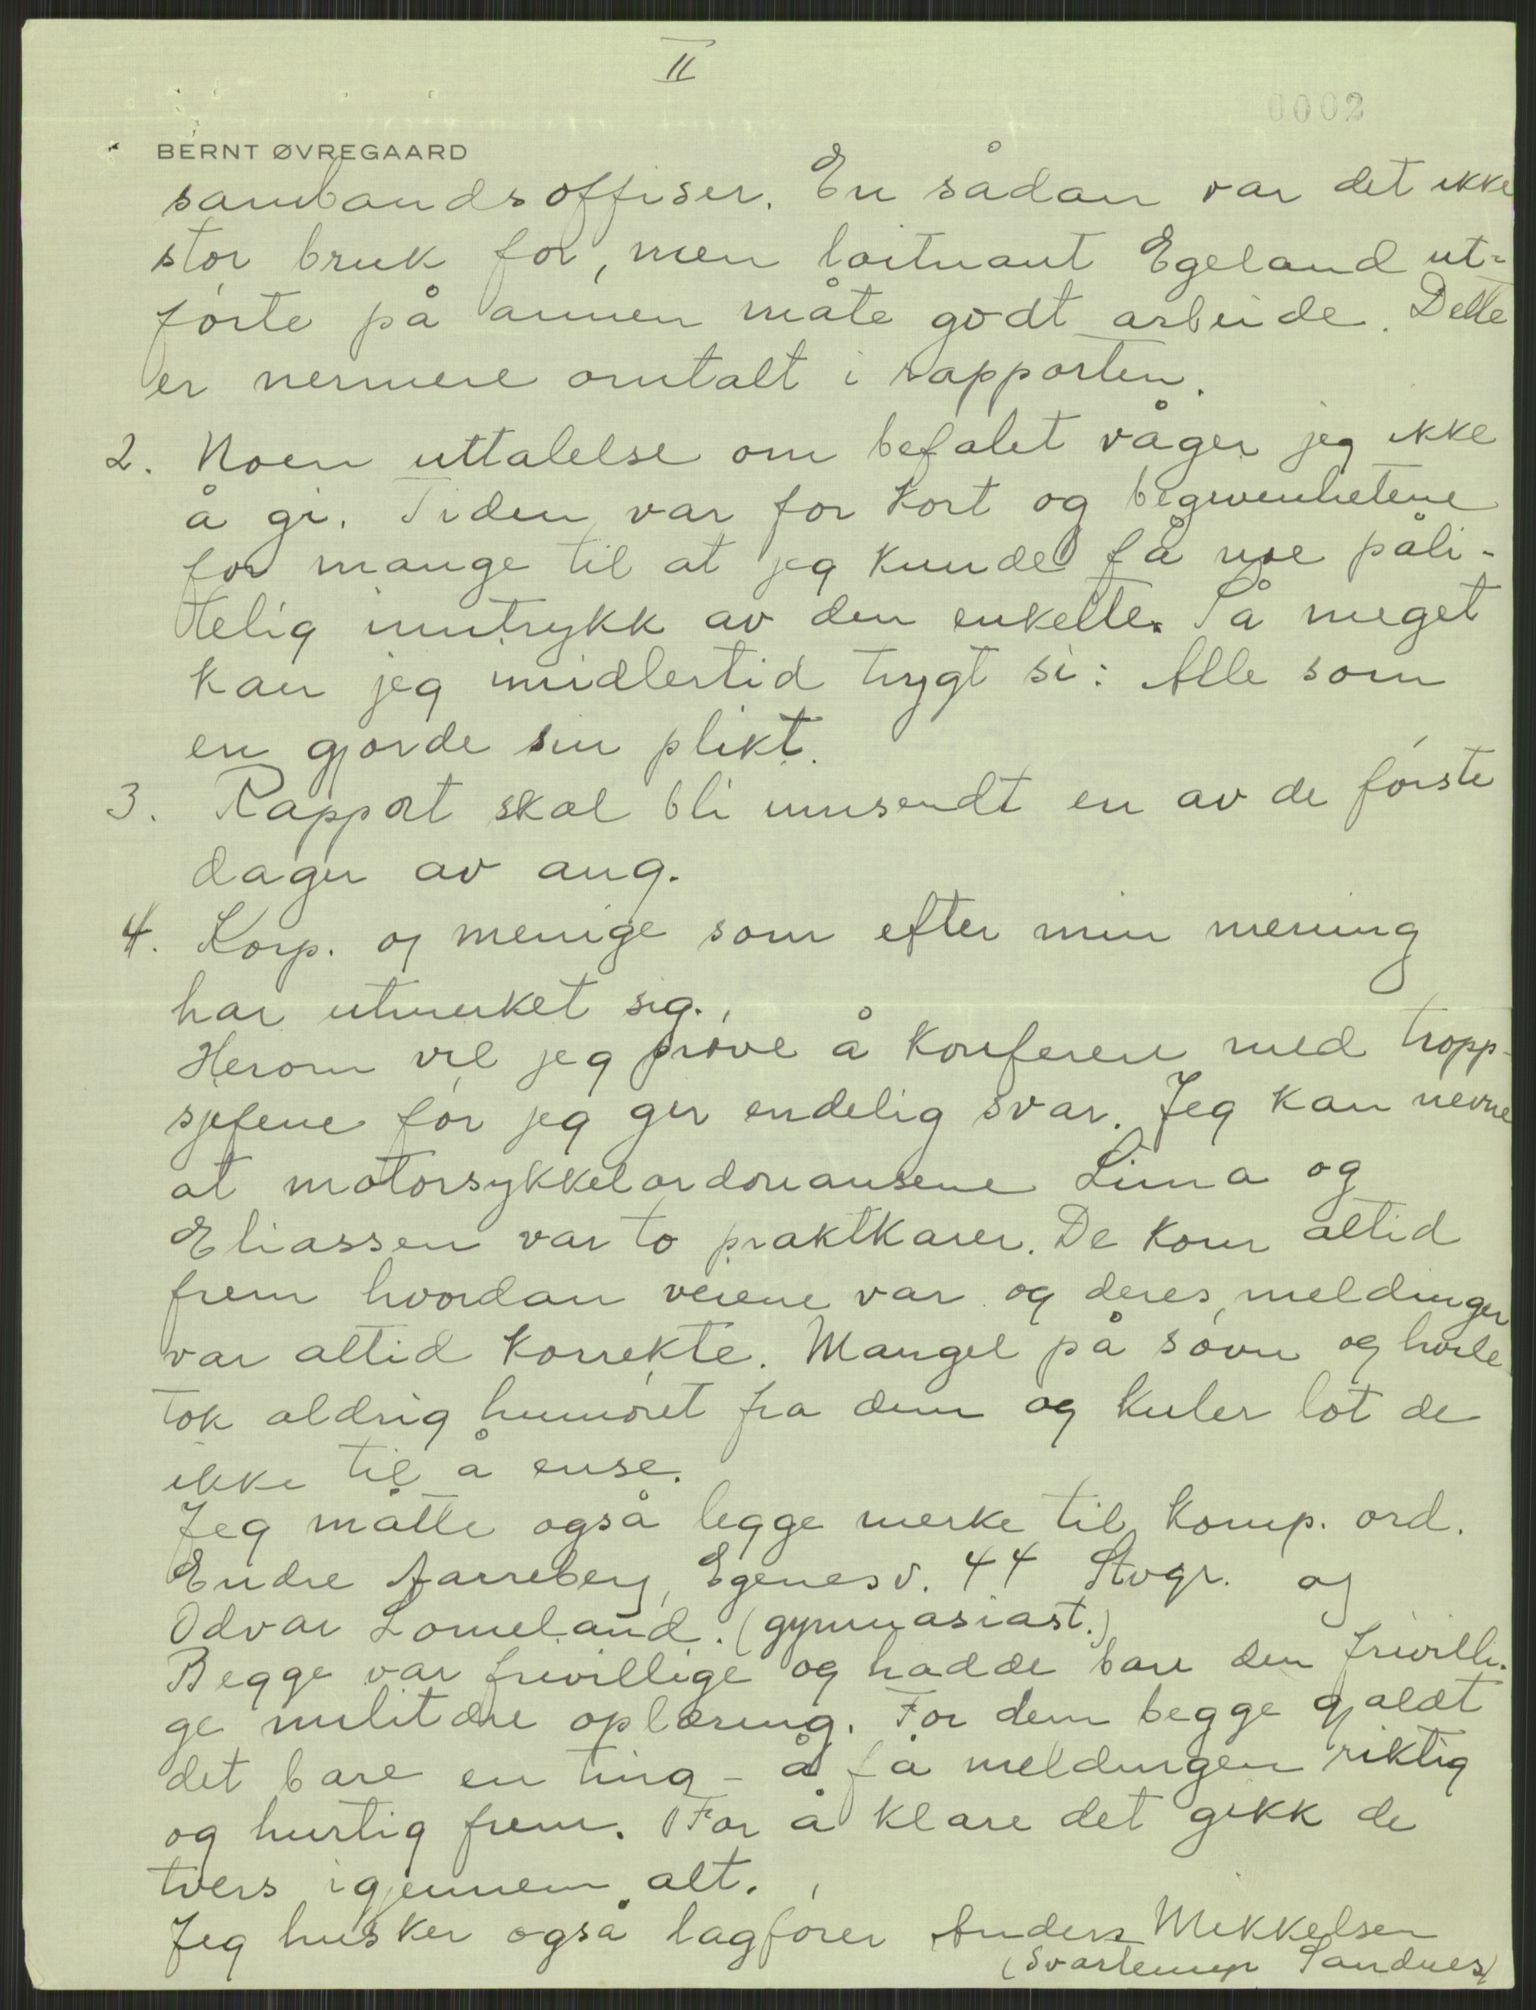 II
0002
BERNT ØVREGAARD
sambandsoffiser. En sådan var det ikke
stor bruk for, men loitnant Egeland ut-
førte på annen måte godt arbeide. Dette
er nermere omtalt i rapporten.
2. Noen uttalelse om befalet våger jeg ikke
å gi. Tiden var for kort og begivenhetene
for mange til at jeg kunde få noe påli-
telig inntrykk av den enkelte. Så meget
kan jeg imidlertid trygt si: Alle som
en gjorde sin plikt.
3. Rapport skal bli innsendt en av de første
dager av aug.
4. Korp. og menige som efter min mening
har utmerket sig.
Herom vil jeg prøve å konferere med tropp-
sjefene før jeg gir endelig svar. Jeg kan nevne
at motorsykkelordonansene Lima og
Eliassen var to praktkarer. De kom altid
frem hvordan veiene var og deres meldinger
var altid korrekte. Mangel på søvn og hvile
tok aldrig humøret fra dem og kuler lot de
ikke til å ense.
Jeg måtte også legge merke til komp. ord.
Endre Aarreberg, Egenesv. 44 Stvgr. og
Odvar Lomeland. (gymnasiast.)
Begge var frivillige og hadde bare den frivilli-
ge militære oplæring. For dem begge gjaldt
det bare en ting - å få meldingen riktig
og hurtig frem. For å klare det gikk de
tvers igjennem alt.
Jeg husker også lagfører Anders Mikkelsen
Sandnes)